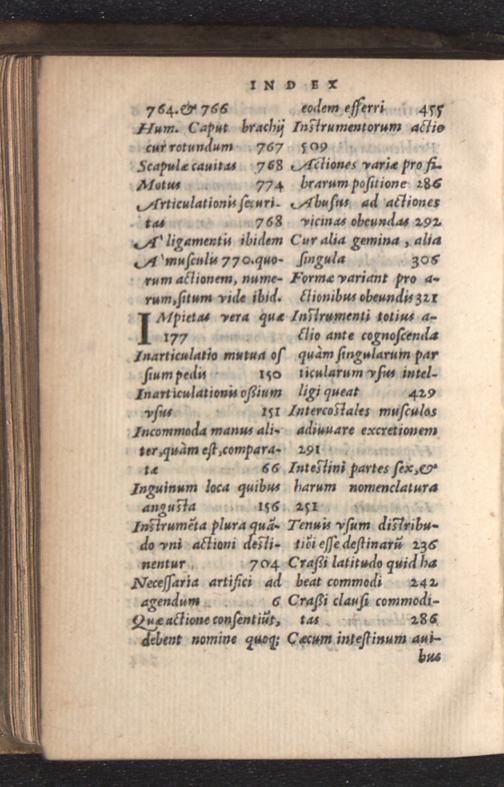 INDEX
764.& 766
Hum. Caput brachij
cur rotundum 767
Scapulæ cauitas 768
Motus 774
Articulationis securi-
tas 768
A' ligamentis ibidem
A' musculis 770.quo-
rum actionem, nume-
rum,situm vide ibid.
IMpietas vera quæ
177
Inarticulatio mutua os
sium pedis 150
Inarticulationis ossium
vsus 151
Incommoda manus ali-
ter,quàm est,compara-
tæ 66
Inguinum loca quibus
angusta 156
Instrumēta plura quā-
do vni actioni desti-
nentur 704
Necessaria artifici ad
agendum 6
Quæ actione consentiūt,
debent nomine quoq;
eodem efferri 455
Instrumentorum actio
509
Actiones variæ pro fi-
brarum positione 286
Abusus ad actiones
vicinas obeundas 292
Cur alia gemina, alia
singula 306
Formæ variant pro a-
ctionibus obeundis 321
Instrumenti totius a-
ctio ante cognoscenda
quàm singularum par
ticularum vsus intel-
ligi queat 429
Intercostales musculos
adiuuare excretionem
291
Intestini partes sex,&
harum nomenclatura
251
Tenuis vsum distribu-
tiōi esse destinarū 236
Crassi latitudo quid ha
beat commodi 242
Crassi clausi commodi-
tas 286
Cæcum intestinum aui-
bus